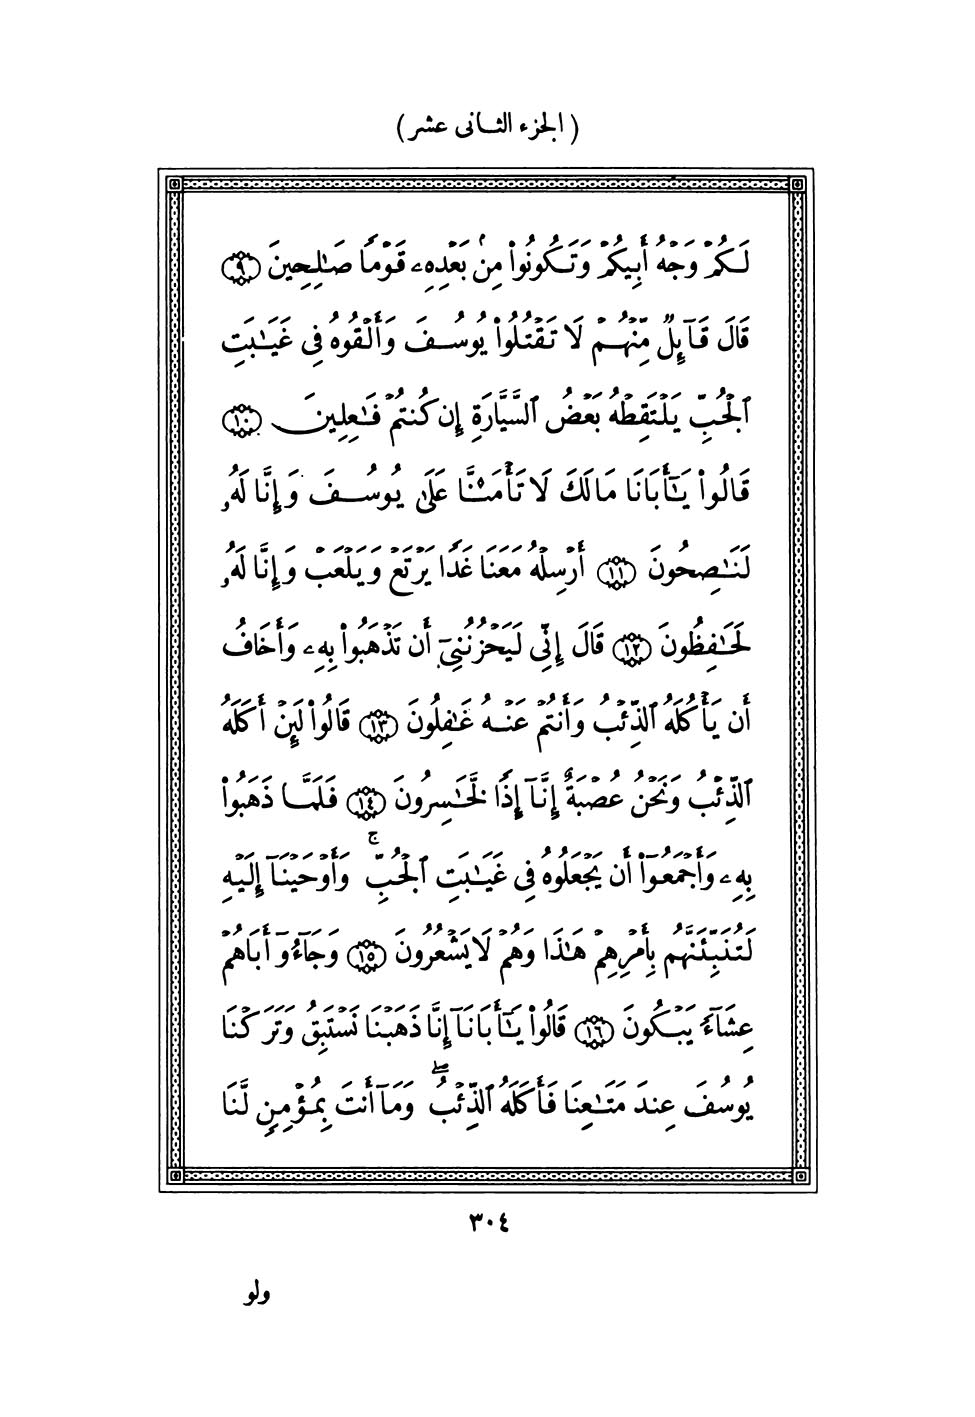 ( الجزء الثانى عشر )
لَكُمْ وَجْهُ أَبِيكُمْ وَتَكُونُوا۟ مِنۢ بَعْدِهِۦ قَوْمًا صَٰلِحِينَ ٩
قَالَ قَآئِلٌ مِّنْهُمْ لَا تَقْتُلُوا۟ يُوسُفَ وَأَلْقُوهُ فِى غَيَٰبَتِ
ٱلْجُبِّ يَلْتَقِطْهُ بَعْضُ ٱلسَّيَّارَةِ إِن كُنتُمْ فَٰعِلِينَ ١٠
قَالُوا۟ يَٰٓأَبَانَا مَا لَكَ لَا تَأْمَ۫نَّا عَلَىٰ يُوسُفَ وَإِنَّا لَهُۥ
لَنَٰصِحُونَ ١١ أَرْسِلْهُ مَعَنَا غَدًا يَرْتَعْ وَيَلْعَبْ وَإِنَّا لَهُۥ
لَحَٰفِظُونَ ١٢ قَالَ إِنِّى لَيَحْزُنُنِىٓ أَن تَذْهَبُوا۟ بِهِۦ وَأَخَافُ
أَن يَأْكُلَهُ ٱلذِّئْبُ وَأَنتُمْ عَنْهُ غَٰفِلُونَ ١٣ قَالُوا۟ لَئِنْ أَكَلَهُ
ٱلذِّئْبُ وَنَحْنُ عُصْبَةٌ إِنَّآ إِذًا لَّخَٰسِرُونَ ١٤ فَلَمَّا ذَهَبُوا۟
بِهِۦ وَأَجْمَعُوٓا۟ أَن يَجْعَلُوهُ فِى غَيَٰبَتِ ٱلْجُبِّ ۚ وَأَوْحَيْنَآ إِلَيْهِ
لَتُنَبِّئَنَّهُم بِأَمْرِهِمْ هَٰذَا وَهُمْ لَا يَشْعُرُونَ ١٥ وَجَآءُوٓ أَبَاهُمْ
عِشَآءً يَبْكُونَ ١٦ قَالُوا۟ يَٰٓأَبَانَآ إِنَّا ذَهَبْنَا نَسْتَبِقُ وَتَرَكْنَا
يُوسُفَ عِندَ مَتَٰعِنَا فَأَكَلَهُ ٱلذِّئْبُ ۖ وَمَآ أَنتَ بِمُؤْمِنٍ لَّنَا
٣٠٤
ولو